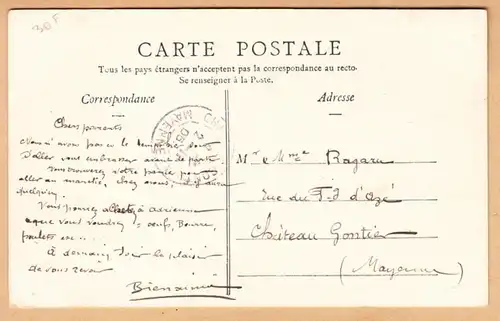 38 F
CARTE POSTALE
Tous les pays étrangers n'acceptent pas la correspondance au recto.
Se renseigner à la Poste.
Correspondance
Adresse
MAYENNE
Chers parents
Nous n'avons pas eu le
d'aller vous embrasser avant de partir
vous trouverez votre
aller au marché, chez nous, il y aura
quelqu'un
Vous pouvez acheter à adrienne
que vous voudrez = œufs, Beurre,
poulets etc ..
À demain soir le plaisir
de vous revoir
Bienaimé
Mr & Mme Ragaru
rue du Fg d'Azé
Château Gontier
(Mayenne)